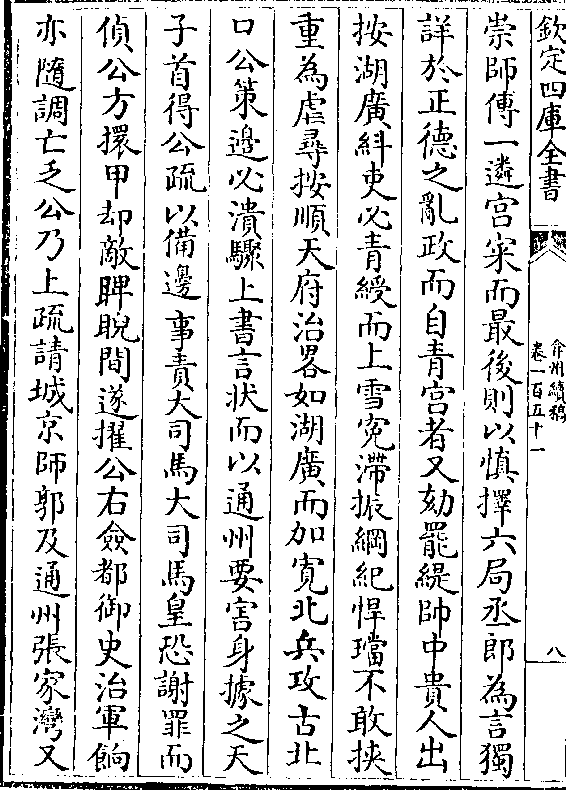 欽定四庫全書
弇州續稿
卷一百五十一
八
崇師傅一遴宫寀而最後則以慎擇六局丞郎為言獨
詳於正德之亂政而自青宫者又劾罷緹帥中貴人出
按湖廣糾吏必青綬而上雪寃滯振綱紀悍璫不敢挾
重為虐尋按順天府治畧如湖廣而加寛北兵攻古北
口公策邊必潰驟上書言狀而以通州要害身據之天
子首得公疏以備邊事責大司馬大司馬皇恐謝罪而
偵公方擐甲却敵睥睨間遂擢公右僉都御史治軍餉
亦隨調亡乏公乃上疏請城京師郭及通州張家灣又